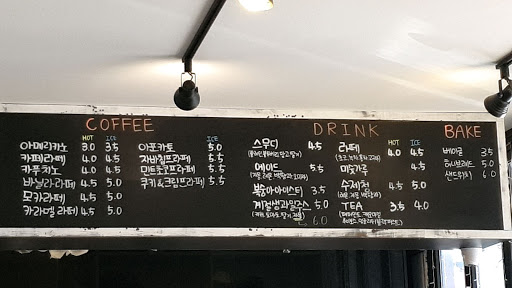 COFFEE
HOT ICE
아메리카노 3.0 3.5
카페라떼 4.0 4.5
카푸치노 4.0 4.5
바닐라라떼 4.5 5.0
모카라떼 4.5 5.0
카라멜라떼 4.5 5.0
ICE
아포카토 5.0
자바칩프라페 5.5
민트초코프라페 5.5
쿠키&크림프라페 5.5
DRINK
스무디 4.5
에이드 5.5
복숭아아이스티 3.5
계절생과일쥬스 5.0
6.0
HOT ICE
라떼 4.0 4.5
미숫가루 4.5
수제청 4.5 5.0
TEA 3.5 4.0
BAKE
베이글 3.5
허니브레드 5.0
샌드위치 6.0